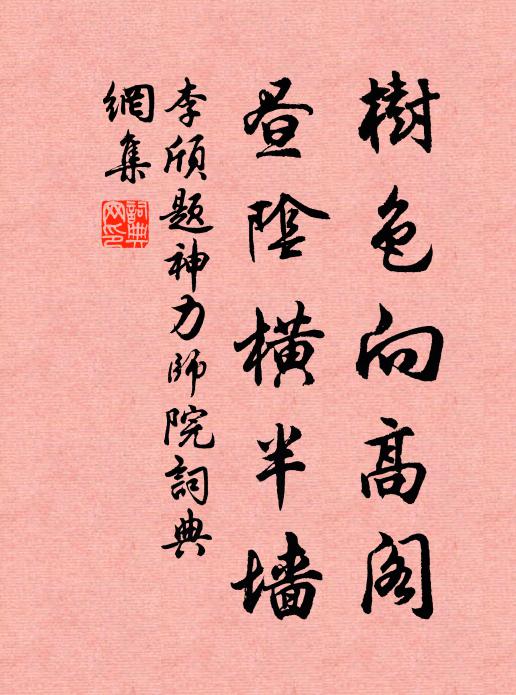 樹色向高閣
昼陰横半墻
李頎題神力師院詞典
網集
詞典網印